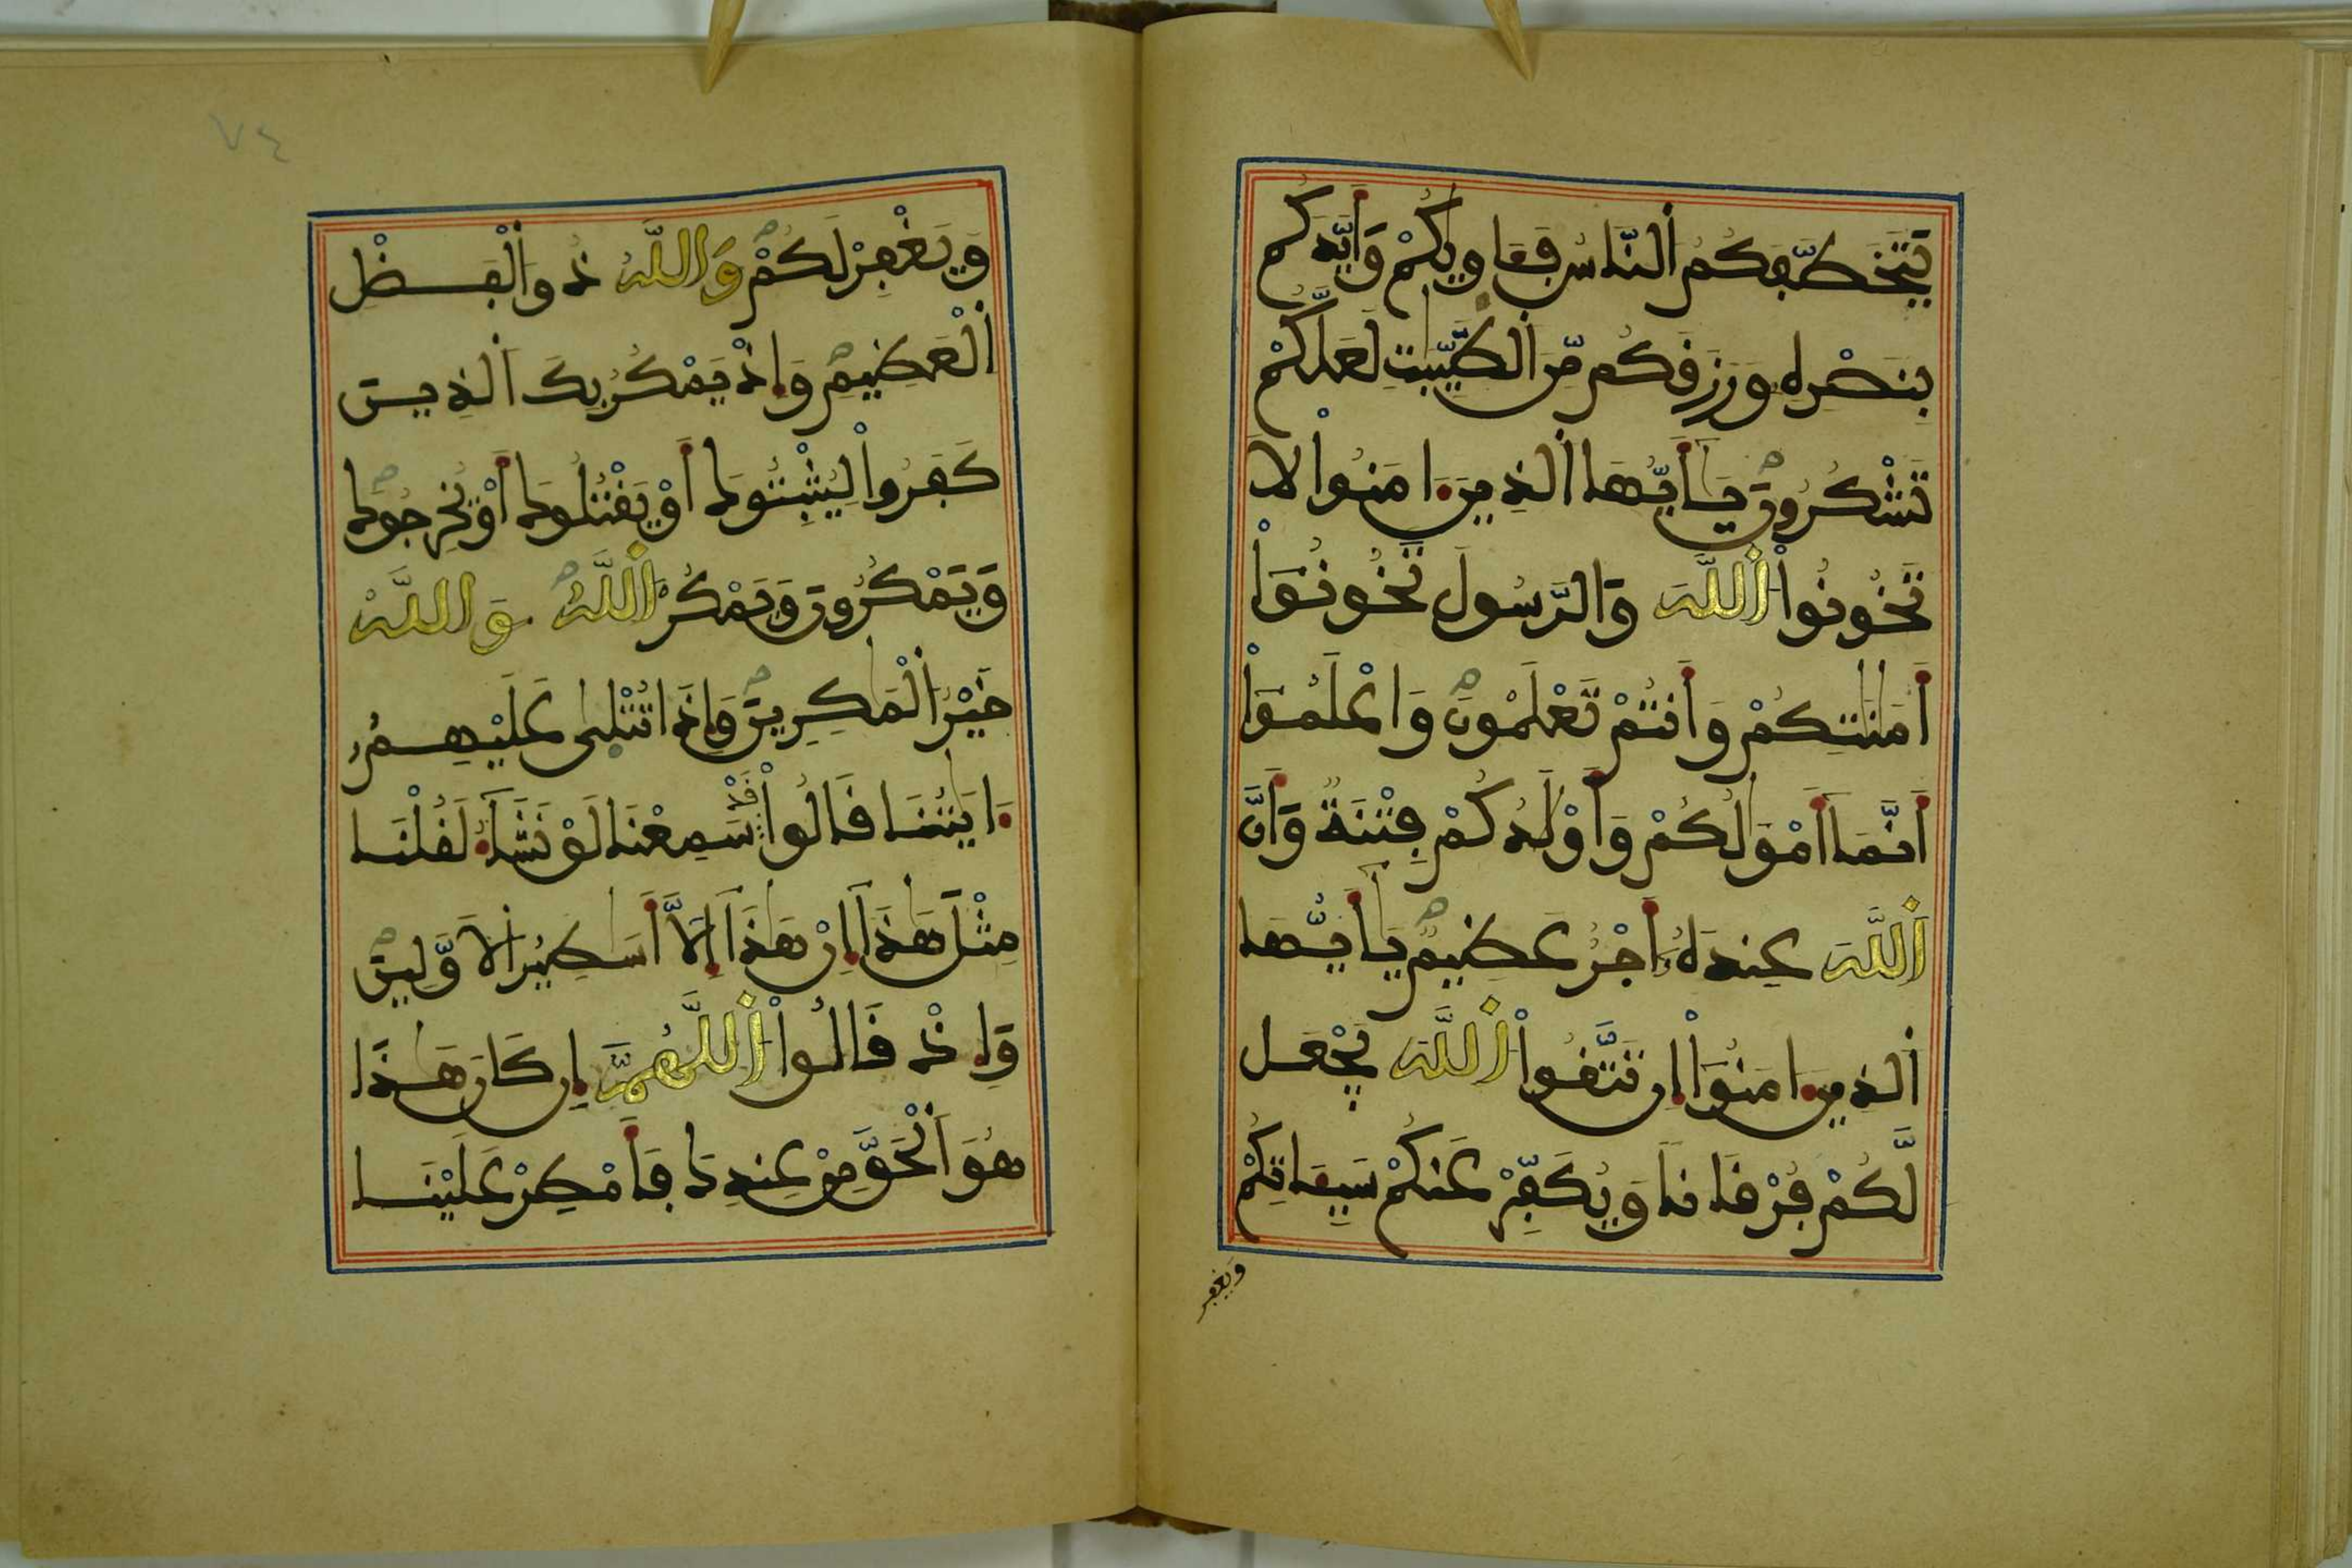 يَّتَخَطَّفَكُمُ اَلنَّاسُ فَـَٔاوٜيكُمْ وَأَيَّدَكُم
بِنَصْرِهِۦ وَرَزَقَكُم مِّنَ اَلطَّيِّبَٰتِ لَعَلَّكُمْ
تَشْكُرُونَ يَٰأَيُّهَا اَلذِينَ ءَامَنُواْ لَا
تَخُونُواْ اُللَّهَ وَالرَّسُولَ تَخُونُوٓاْ
أَمَٰنَٰتِكُمْ وَأَنتُمْ تَعْلَمُونَ وَاعْلَمُوٓاْ
أَنَّمَآ أَمْوَٰلُكُمْ وَأَوْلَٰدُكُمْ فِتْنَةٌ وَأَنَّ
اَللَّهَ عِندَهُۥٓ أَجْرٌ عَظِيمٌ يَٰأَيُّهَا
اَلذِينَ ءَامَنُوٓاْ إِن تَتَّقُواْ اُللَّهَ يَجْعَل
لَّكُمْ فُرْقَاناً وَيُكَفِّرْ عَنكُمْ سَيِّـَٔاتِكُمْ
ويغفر
٧٤
وَيَغْفِرْ لَكُمْ وَاللَّهُ ذُو اَلْفَضْلِ
اِلْعَظِيمِ وَإِذْ يَمْكُرُ بِكَ اَلذِينَ
كَفَرُواْ لِيُثْبِتُوكَ أَوْ يَقْتُلُوكَ أَوْ يُخْرِجُوكَ
وَيَمْكُرُونَ وَيَمْكُرُ اُللَّهُ وَاللَّهُ
خَيْرُ اُلْمَٰكِرِينَ وَإِذَا تُتْلٜىٰ عَلَيْهِمُۥٓ
ءَايَٰتُنَا قَالُواْ قَدْ سَمِعْنَا لَوْ نَشَآءُ لَقُلْنَا
مِثْلَ هَٰذَآ إِنْ هَٰذَآ إِلَّآ أَسَٰطِيرُ اُلَاوَّلِينَ
وَإِذْ قَالُواْ اُللَّهُمَّ إِن كَانَ هَٰذَا
هُوَ اَلْحَقَّ مِنْ عِندِكَ فَأَمْطِرْ عَلَيْنَا